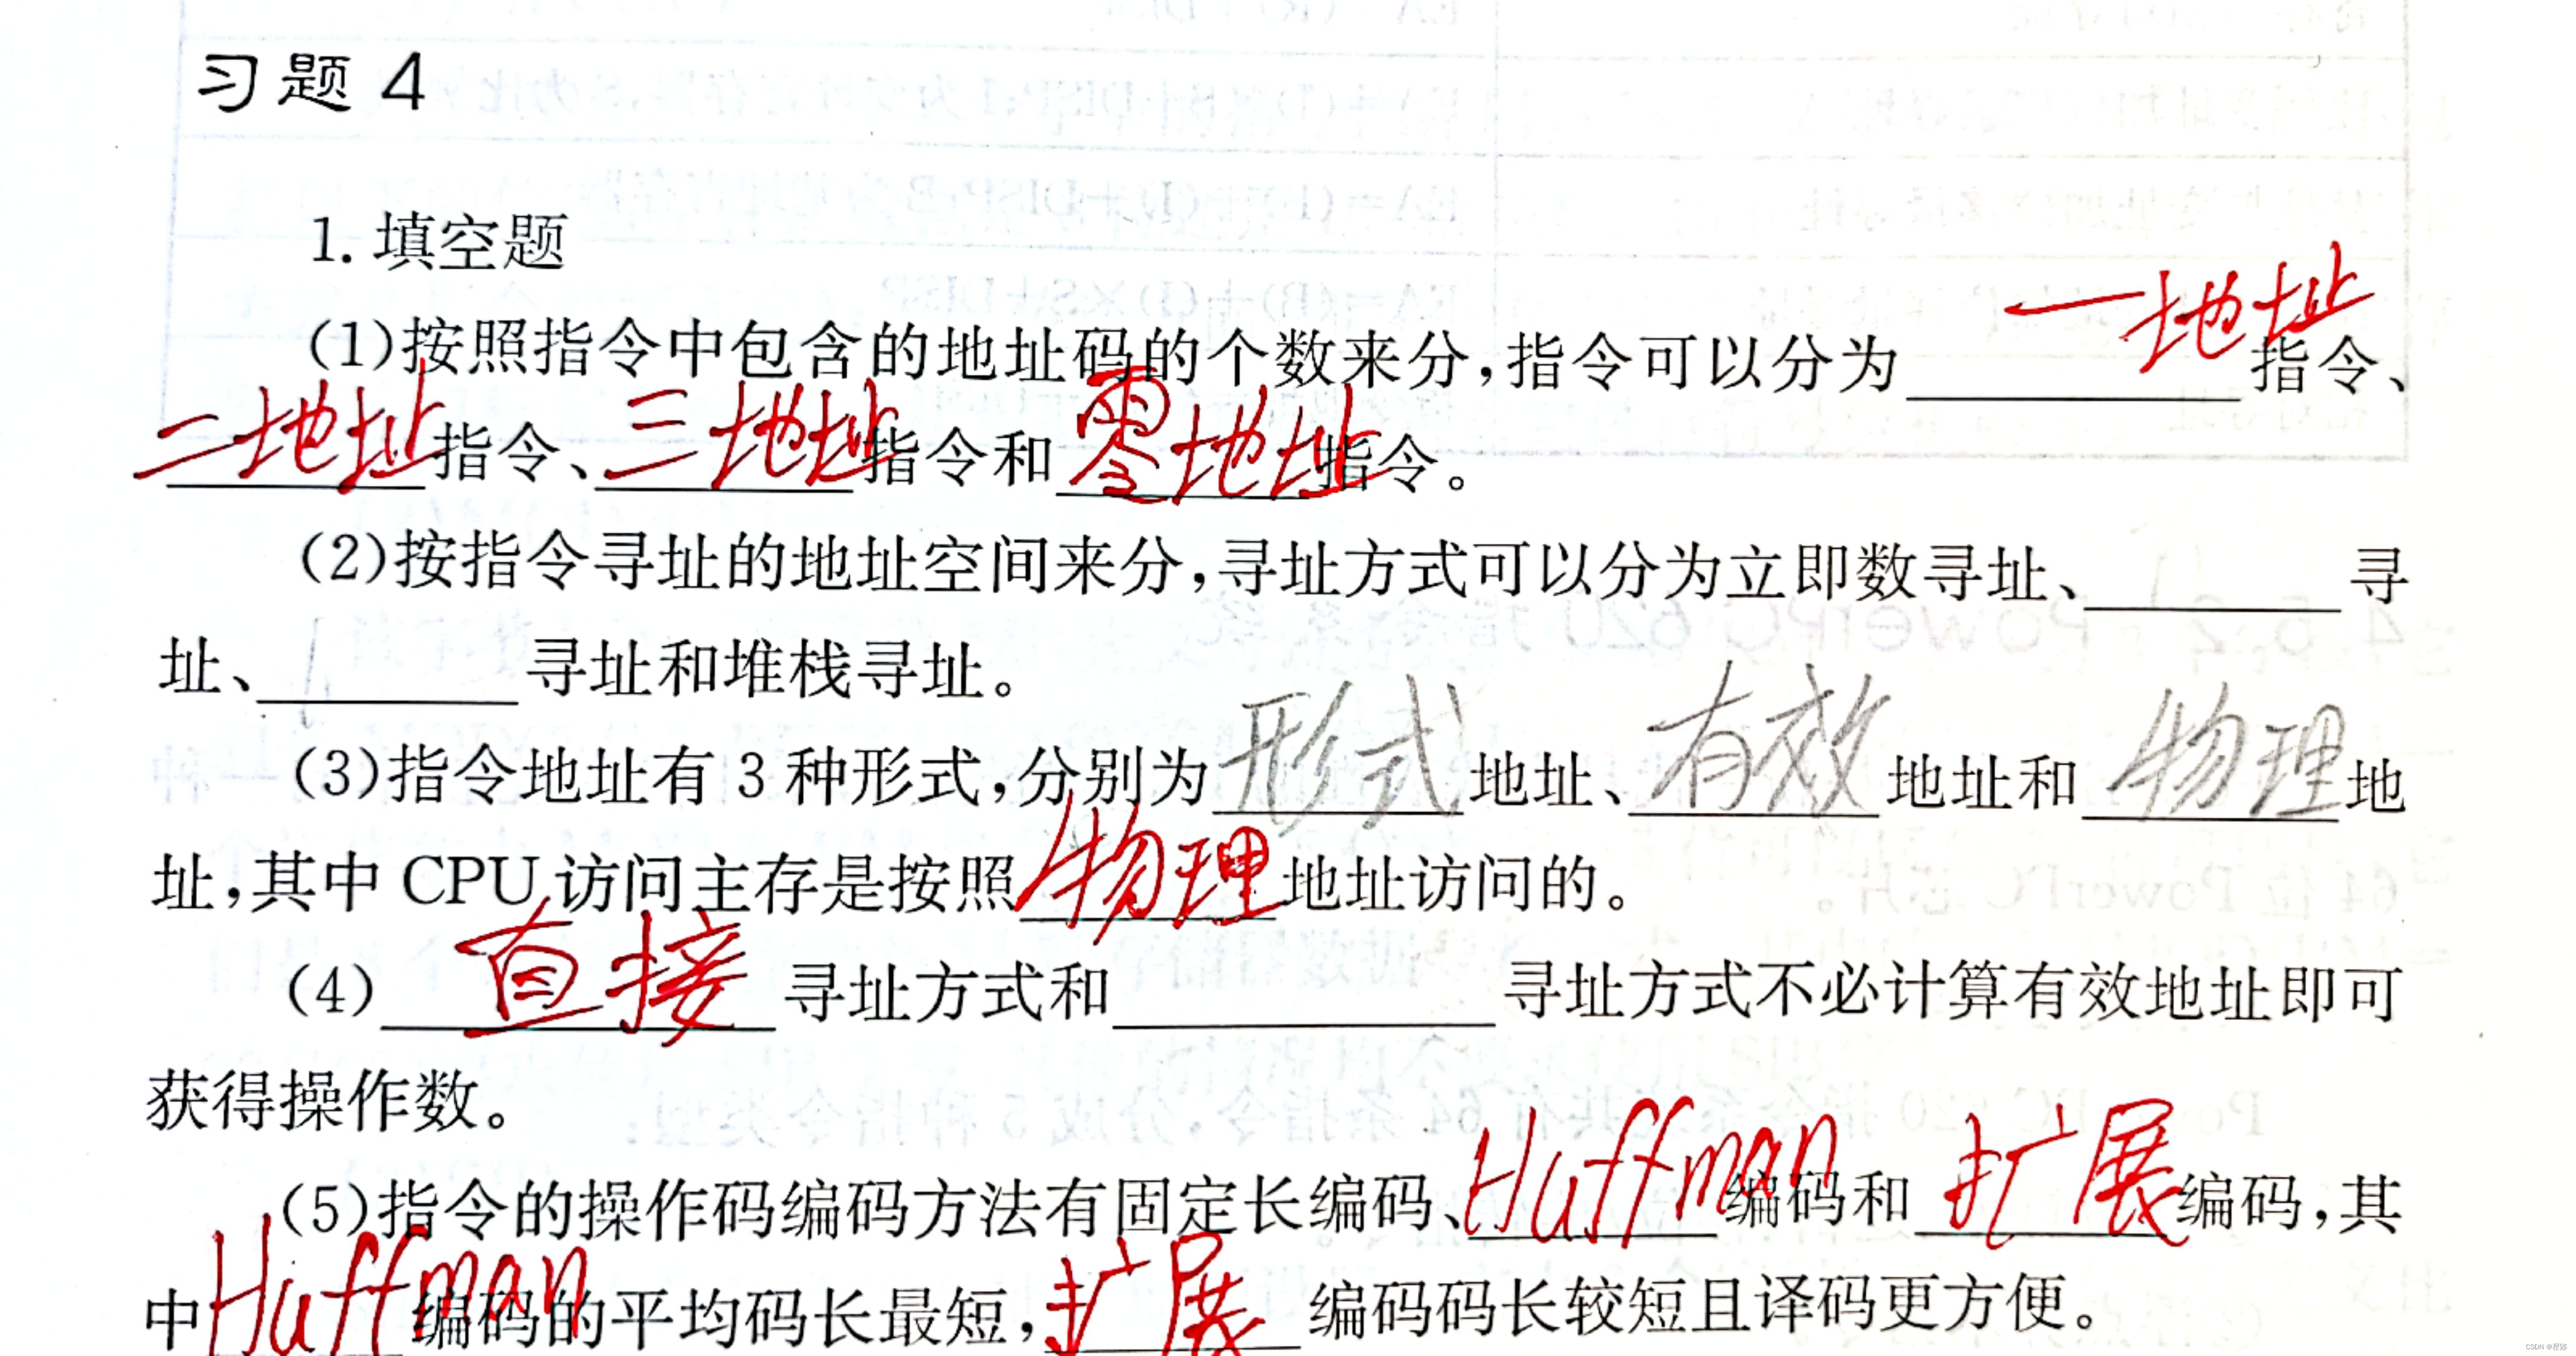 习题 4
1. 填空题
(1)按照指令中包含的地址码的个数来分,指令可以分为 一地址 指令、
二地址 指令、三地址 指令和 零地址 指令。
(2)按指令寻址的地址空间来分,寻址方式可以分为立即数寻址、______寻
址、______寻址和堆栈寻址。
(3)指令地址有 3 种形式,分别为 形式 地址、有效 地址和 物理 地
址,其中 CPU 访问主存是按照 物理 地址访问的。
(4) 直接 寻址方式和______寻址方式不必计算有效地址即可
获得操作数。
(5)指令的操作码编码方法有固定长编码、Huffman 编码和 扩展 编码,其
中 Huffman 编码的平均码长最短, 扩展 编码码长较短且译码更方便。